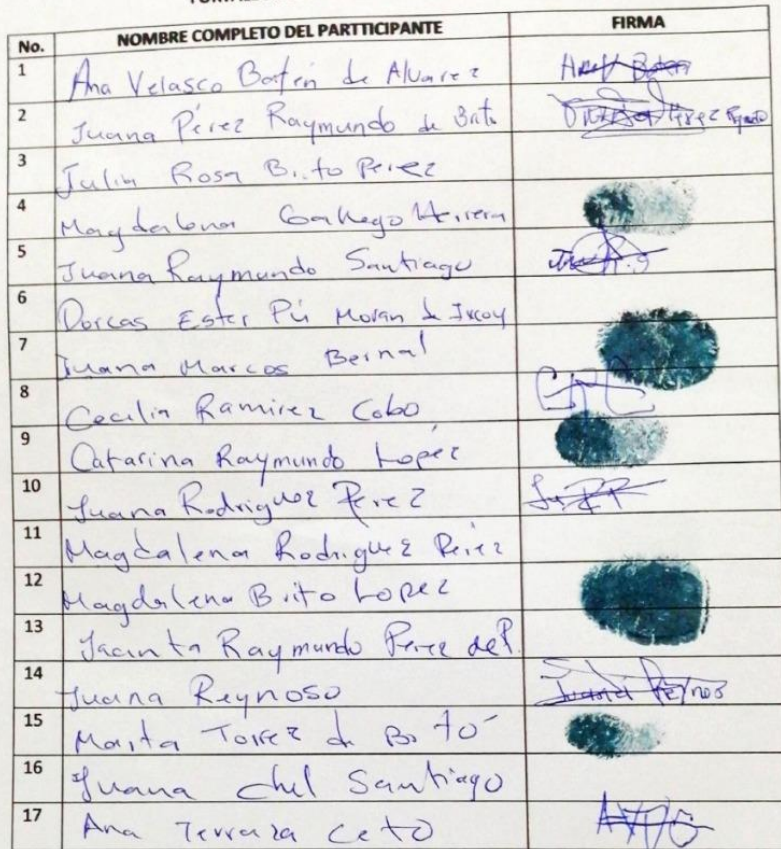 No. NOMBRE COMPLETO DEL PARTTICIPANTE FIRMA
1 Ana Velasco Batén de Alvarez
2 Juana Pérez Raymundo de Brito
3 Julia Rosa Brito Perez
4 Magdalena Gallego Herrera
5 Juana Raymundo Santiago
6 Dorcas Ester Pú Moran de
7 Juana Marcos Bernal
8 Cecilia Ramirez Cobo
9 Catarina Raymundo Lopez
10 Juana Rodriguez Perez
11 Magdalena Rodriguez Perez
12 Magdalena Brito Lopez
13 Jacinta Raymundo Perez de P.
14 Juana Reynoso
15 Marta Torrez de Brito
16 Juana Chel Santiago
17 Ana Terraza Ceto